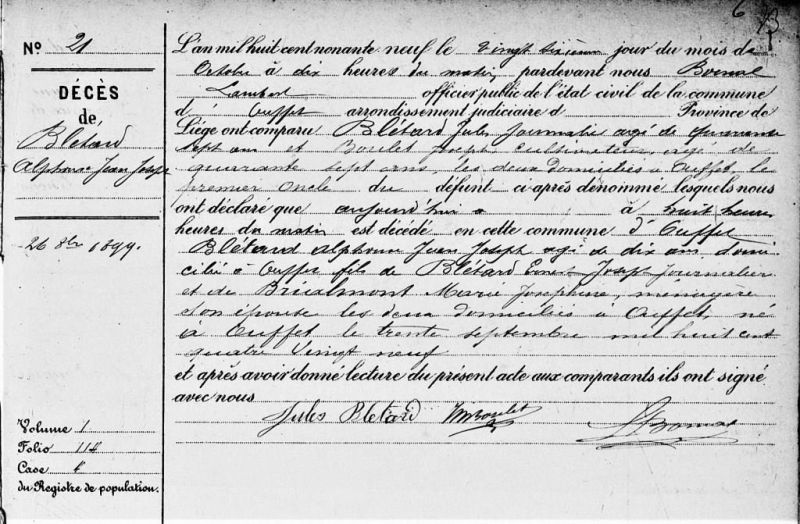 6
Nº 21
DÉCÈS
de
Blétard
Alphonse Jean Joseph
26 8bre 1899.
Volume 1
Folio 114
Case
du Registre de population.
L'an mil huit cent nonante neuf le vingt sixième jour du mois de
Octobre à dix heures du matin, pardevant nous
Lambert officier public de l'état civil de la commune
d' Ouffet arrondissement judiciaire d Province de
Liége ont comparu Blétard Jules Journalier agé de quarante
sept ans et Boulet Joseph Cultivateur, agé de
quarante sept ans, les deux domiciliés à Ouffet, le
premier oncle du défunt ci-après dénommé lesquels nous
ont déclaré que aujourd'hui à à huit heures
heures du matin est décédé en cette commune d' Ouffet
Blétard Alphonse Jean Joseph agé de dix ans domi
cilié à Ouffet fils de Blétard Joseph Journalier
et de Brialmont Marie Josephine, ménagère
son épouse les deux domiciliés à Ouffet, né
à Ouffet le trente septembre mil huit cent
quatre vingt neuf
et après avoir donné lecture du présent acte aux comparants ils ont signé
avec nous
Jules Bletard Boulet